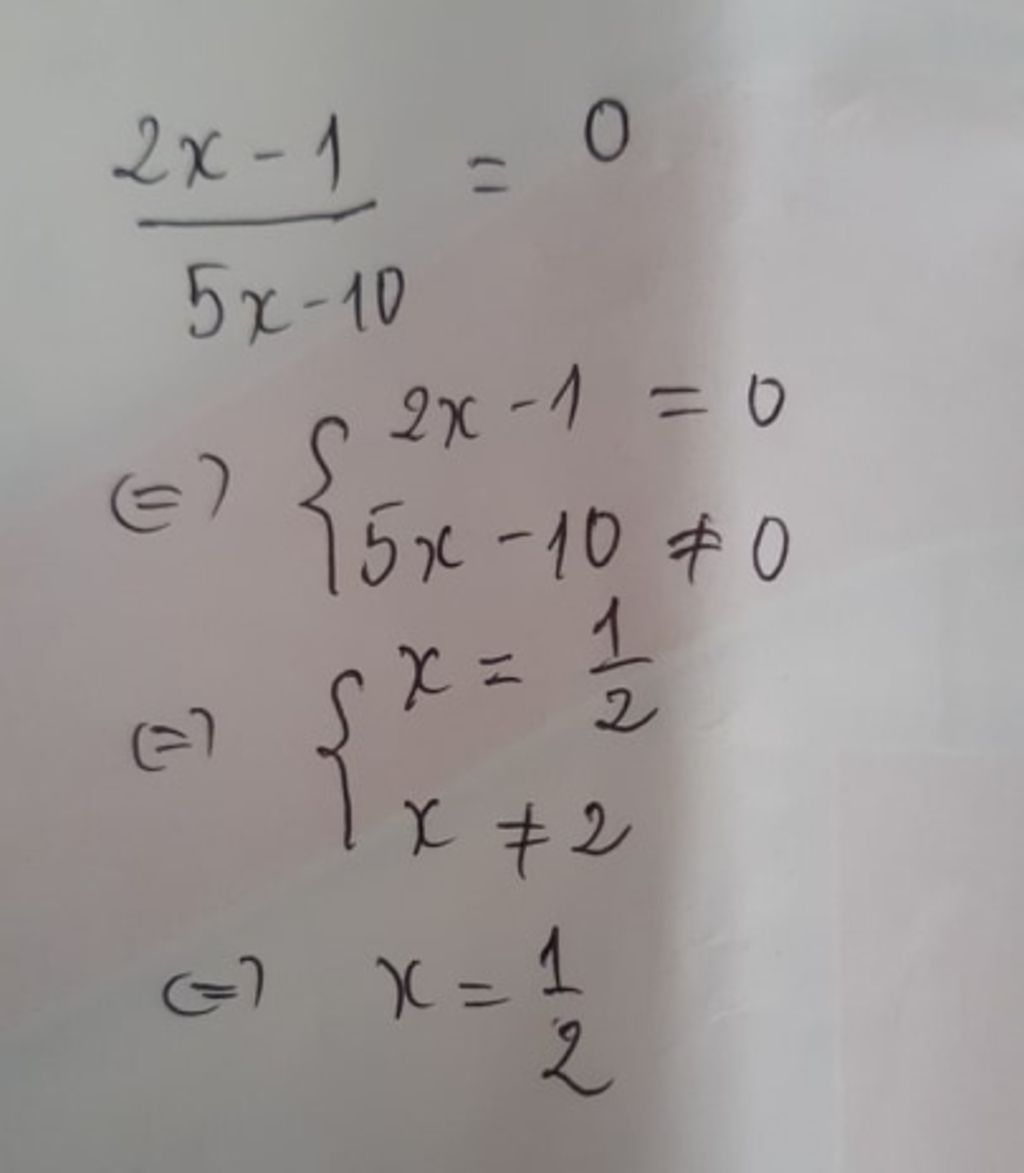 2x - 1 = 0
5x - 10
⇔ { 2x - 1 = 0
5x - 10 ≠ 0
⇔ { x = 1/2
x ≠ 2
⇔ x = 1/2